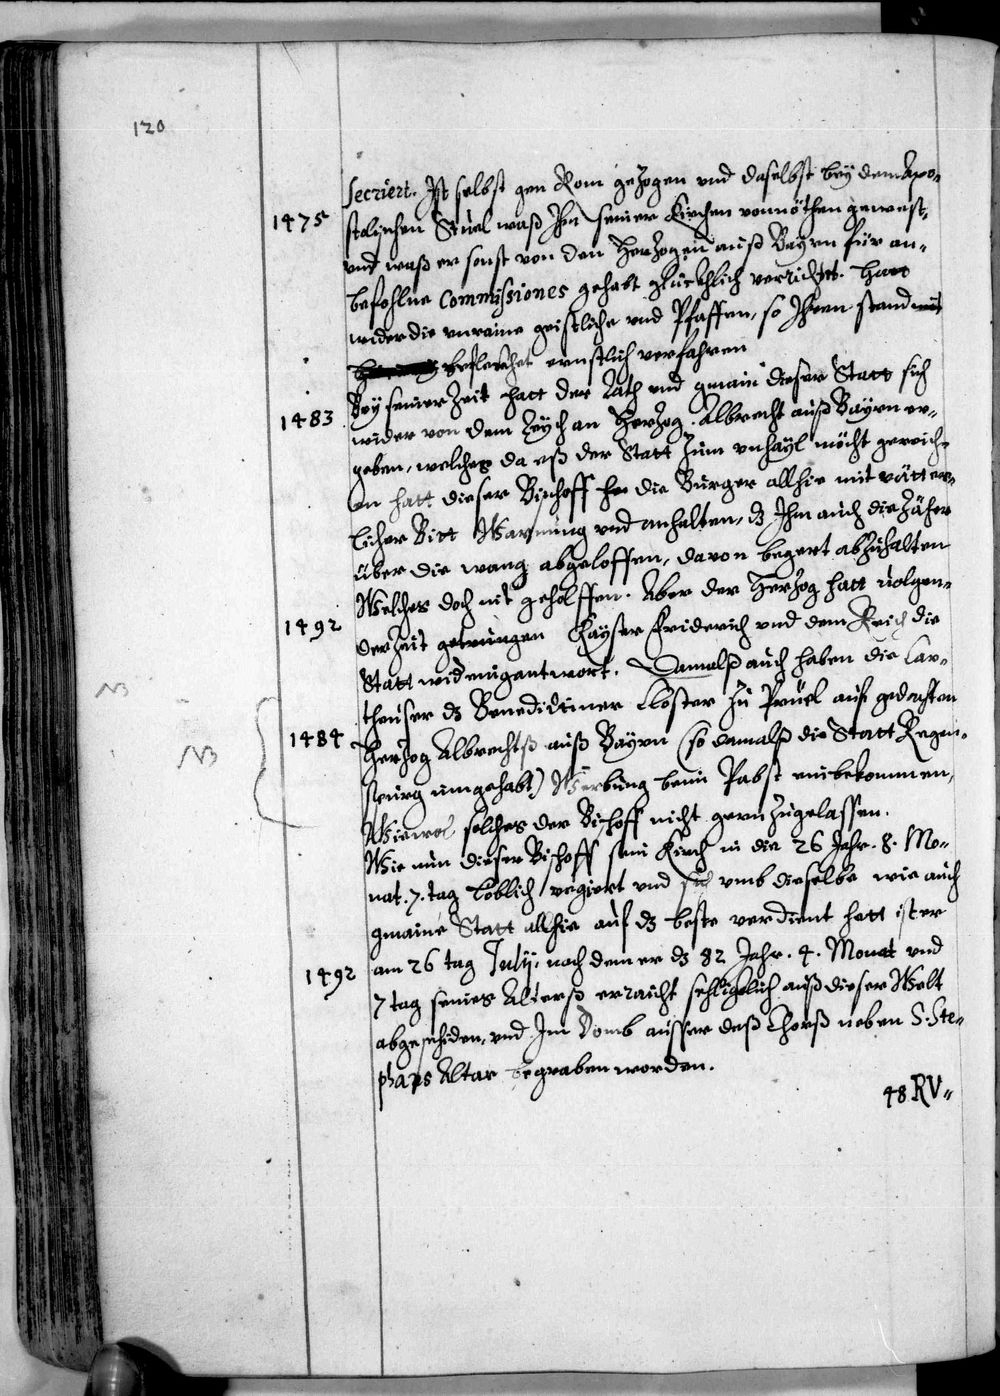 120
secriert. Ist selbst gen Rom gezogen vnd daselbst bey dem Apo-
1475 stolischen Stuel waß Ihm seiner Kirchen vonnöthen gewest,
vnd waß er sonst von den Herzogen auß Bayrn für an-
befohlne Commissiones gehabt glückhlich verricht. Hatt
wider die vnraine geistliche vnd Pfaffen, so Ihren stand mit
befleckhet ernstlich verfahren
1483 Bey seiner Zeit hatt der Rath vnd gmain dieser Statt sich
wider von dem Reych an Herzog Albrecht auß Bayrn er-
geben, welches da eß der Statt zum vnhayl möcht gereich-
en hatt dieser Bischoff die Burger allhie mit vätter-
licher Bitt Warnung vnd anhalten, dz Ihm auch die Zäher
über die wang abgeloffen, davon begert abzuhalten
Welches doch nit geholffen. Aber der Herzog hatt volgen-
1492 der Zeit getrungen Kayser Friderich vnd dem Reich die
Statt widerumigantwort. Damalß auch haben die Car-
NB
theuser dz Benedictiner Closter zu Prüel auf gedachten
1484 Herzog Albrechtß auß Bayrn (so damalß die Statt Regen-
NB
spurg inngehabt) Werbung beim Pabst einbekommen,
Wiewol solches der Bischoff nicht gern zugelassen.
Wie nun dieser Bischoff sein Kirch in die 26 Jahr. 8. Mo-
nat. 7. tag löblich regiert vnd sich vmb dieselbe wie auch
gmaine Statt allhie auf dz beste verdient hatt ist er
1492 am 26 tag Julij, nach dem er dz 82 Jahr. 4. Monat vnd
7 tag seines Alterß erraicht seligclich auß dieser Welt
abgeschiden, vnd Im Domb ausser deß Chorß neben S. Ste-
phans Altar begraben worden.
48 RV-